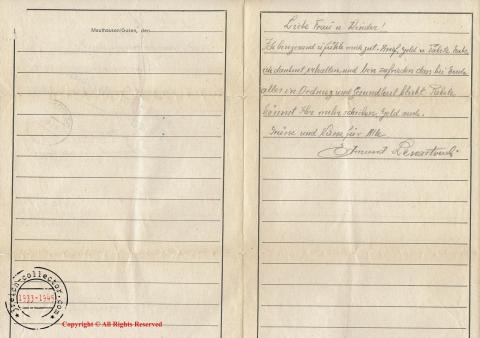 Mauthausen/Gusen, den
Liebe Frau u Kinder!
Ich bin gesund u fühle mich gut. Brief, Geld u Pakete habe
ich dankend erhalten und bin zufrieden dass bei Euch
alles in Ordnung und Gesundheit bleibt. Pakete
könnt Ihr mehr schicken, Geld auch.
Grüsse und Küsse für Alle
Edmund
1933-1945
Copyright © All Rights Reserved